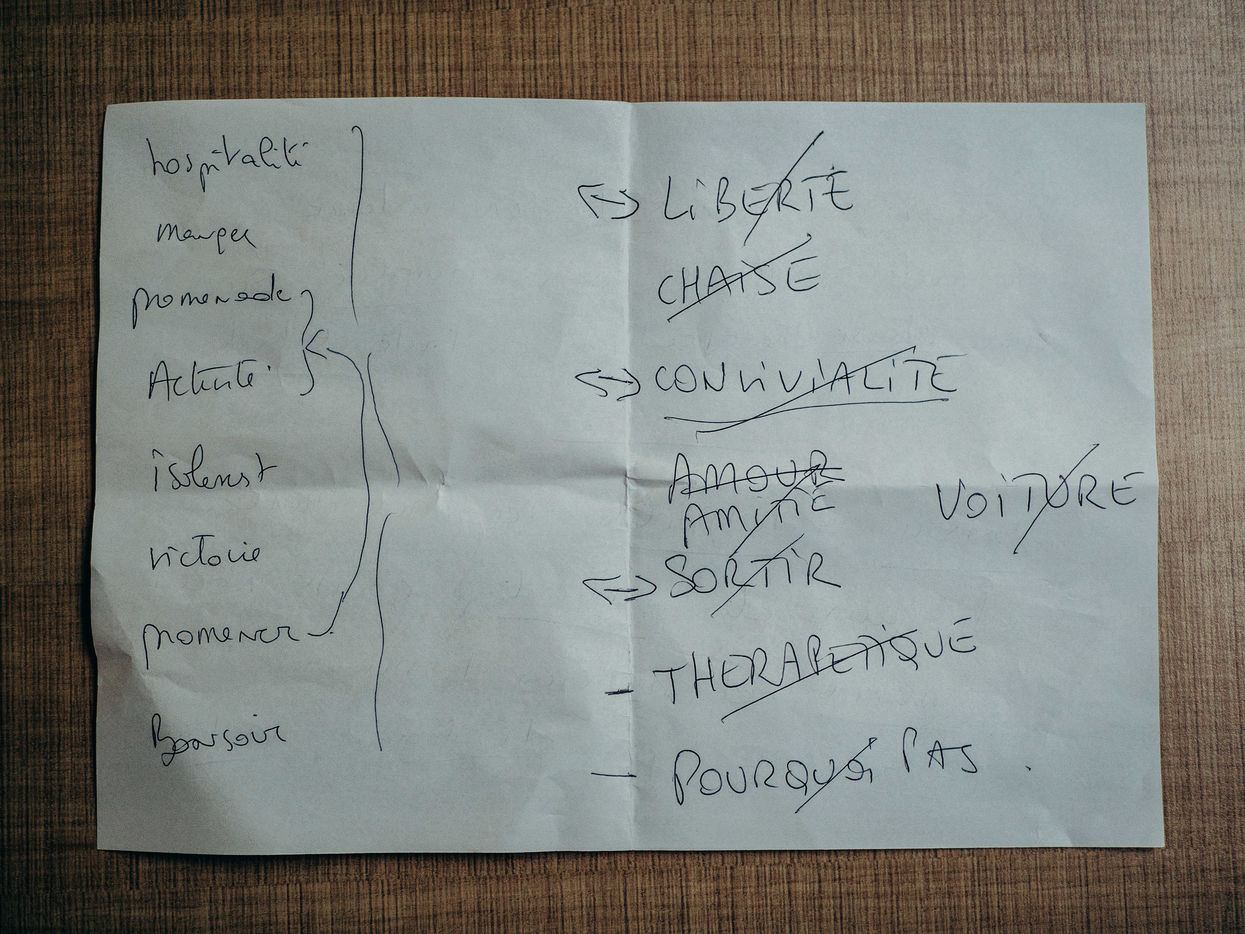 hospitalité
manger
promenade
Activité
victoire
promener
Bonsoir
LIBERTÉ
CHAISE
CONVIVIALITÉ
AMOUR
AMITIÉ
VOITURE
SORTIR
THERAPETIQUE
POURQUOI PAS.